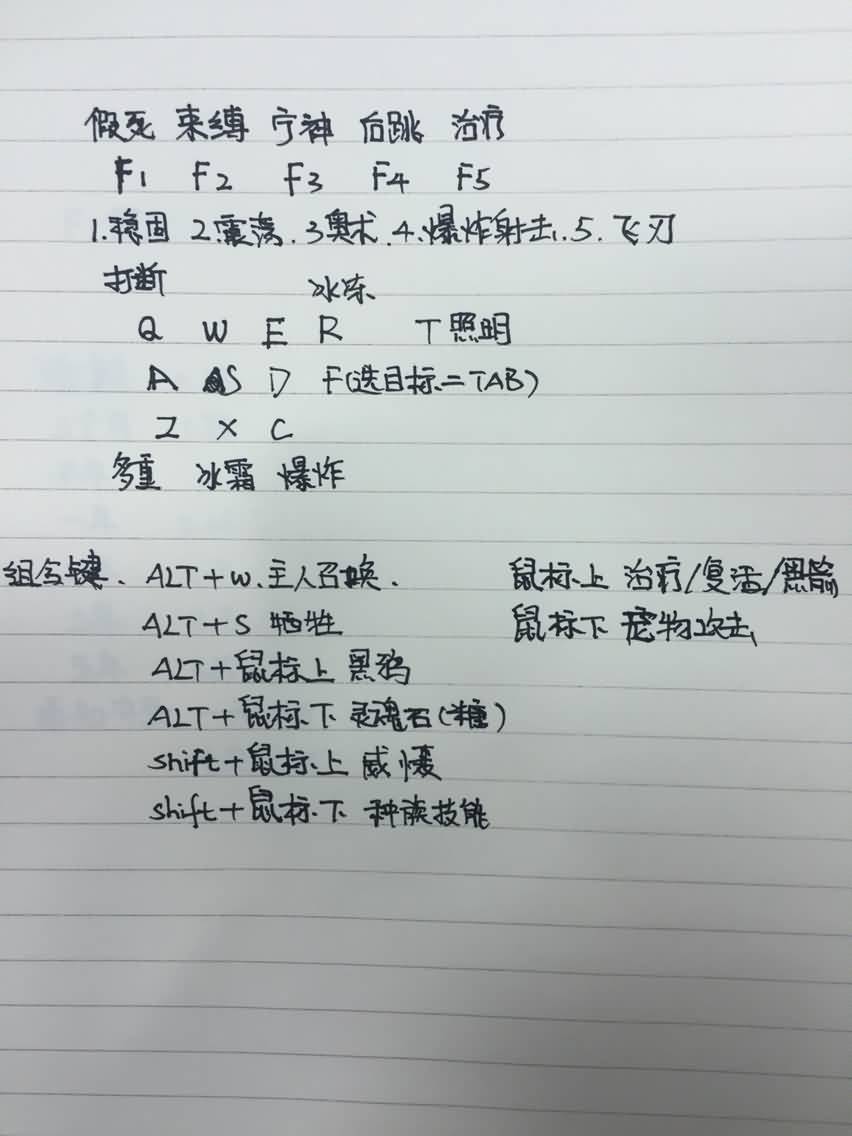 假死 束缚 宁神 后跳 治疗
F1 F2 F3 F4 F5
1.稳固 2.震荡.3奥术.4.爆炸射击.5.飞刃
打断 冰冻
Q W E R T照明
A S D F(选目标=TAB)
Z X C
多重 冰霜 爆炸
组合键、ALT+W.主人召唤. 鼠标上 治疗/复活/黑箭
ALT+S 牺牲 鼠标下 宠物攻击
ALT+鼠标上 黑鸦
ALT+鼠标下 灵魂石(糖)
shift+鼠标上 威慑
shift+鼠标下 种族技能